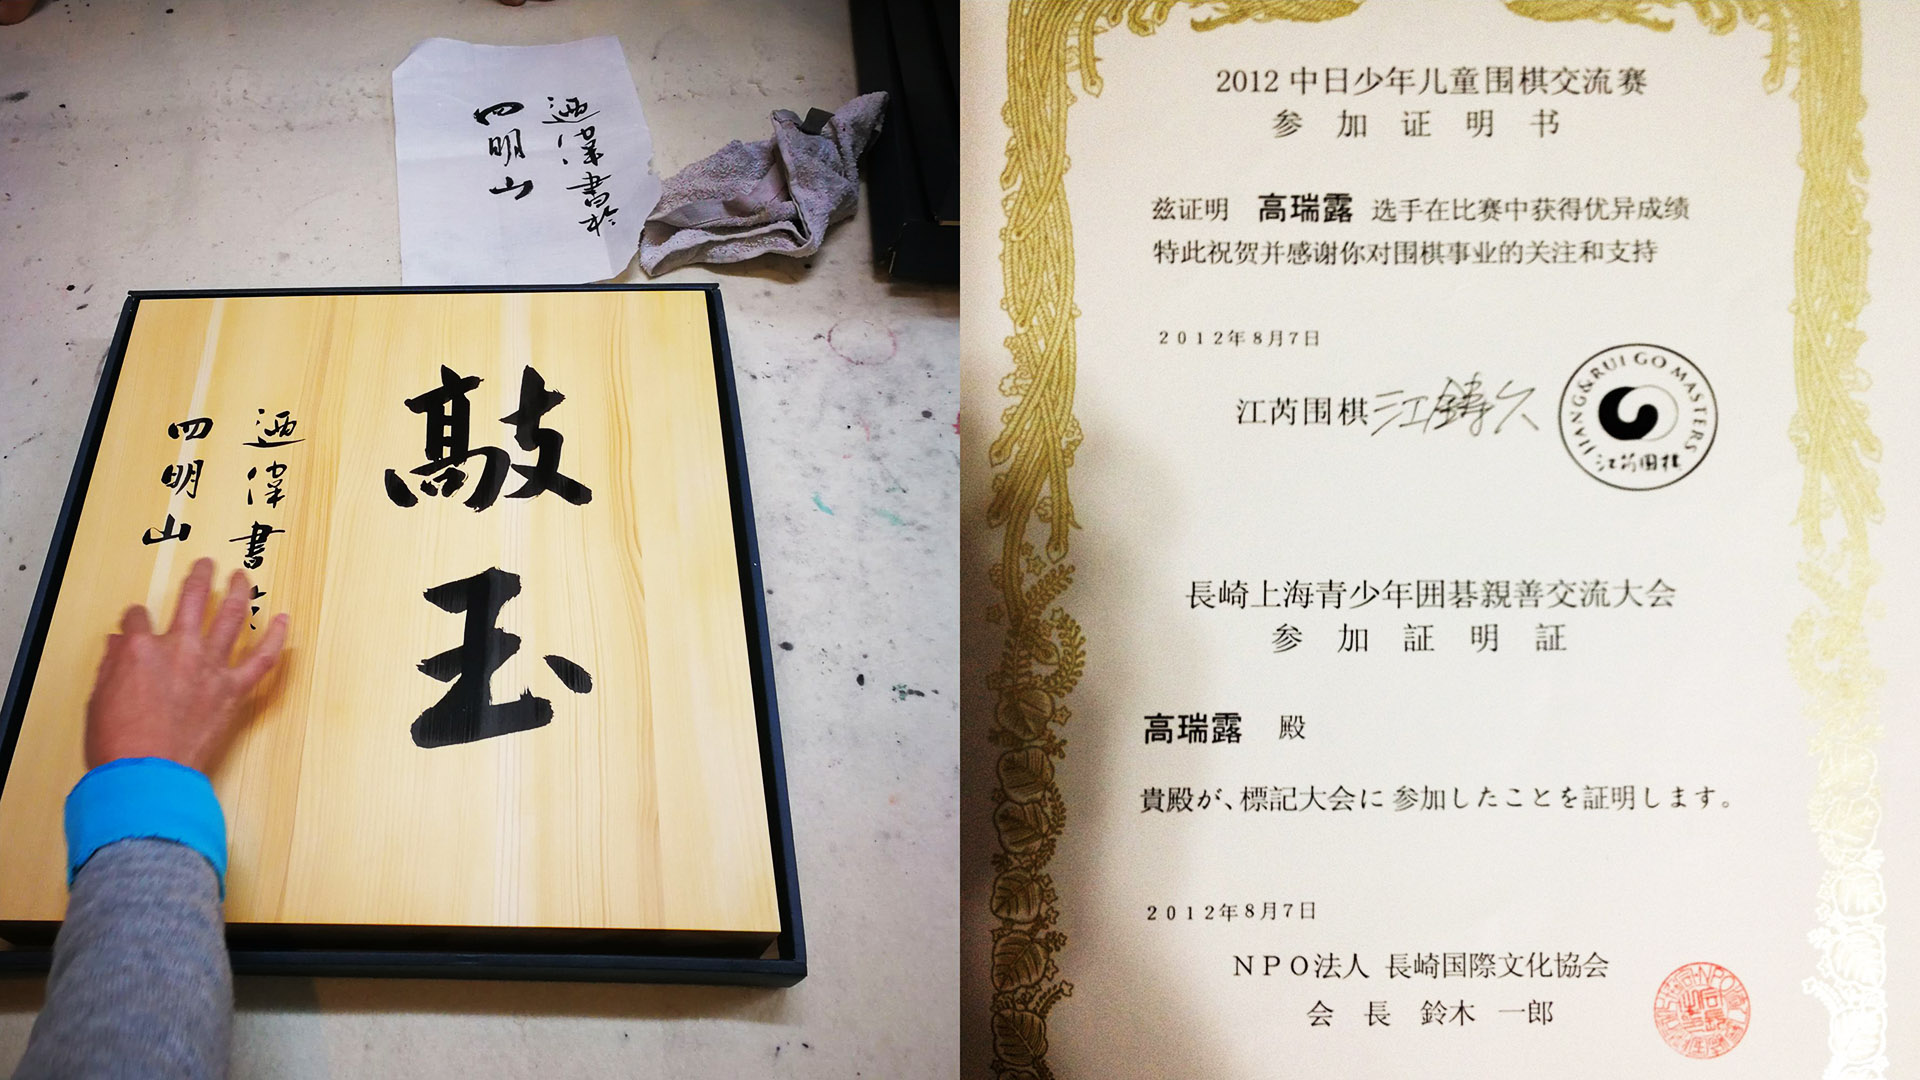 迺偉書於
四明山
敲玉
迺偉書於
四明山
2012中日少年儿童围棋交流赛
参加证明书
兹证明 高瑞露 选手在比赛中获得优异成绩
特此祝贺并感谢你对围棋事业的关注和支持
2012年8月7日
江芮围棋 江鋳久
JIANG&RUI GO MASTERS
江芮围棋
長崎上海青少年囲碁親善交流大会
参加証明証
高瑞露 殿
貴殿が、標記大会に参加したことを証明します。
2012年8月7日
NPO法人 長崎国際文化協会
会長 鈴木 一郎